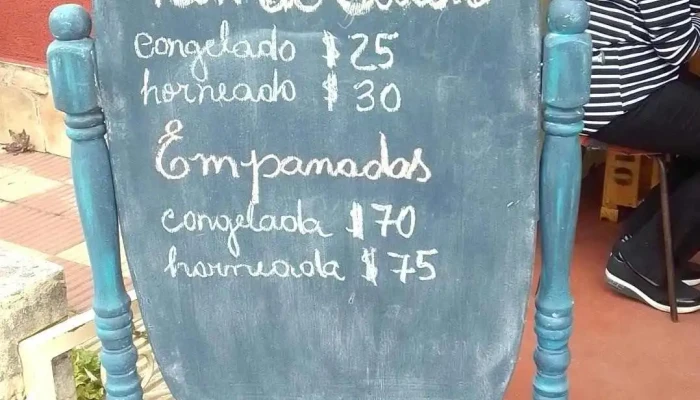 congelado $ 25
horneado $ 30
Empanadas
congelada $ 70
horneada $ 75